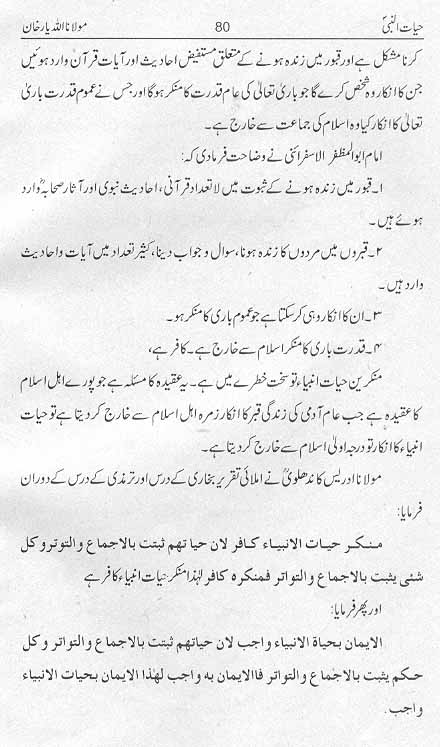 حیات النبیؐ 80 مولانا اللہ یار خان
کرنا مشکل ہے اور قبور میں زندہ ہونے کے متعلق مستفیض احادیث اور آیات قرآن وارد ہوئیں
جن کا انکار وہ شخص کرے گا جو باری تعالیٰ کی عام قدرت کا منکر ہوگا اور جس نے عموم قدرت باری
تعالیٰ کا انکار کیا وہ اسلام کی جماعت سے خارج ہے۔
امام ابوالمظفر الاسفرائنی نے وضاحت فرما دی کہ:
۱۔ قبور میں زندہ ہونے کے ثبوت میں لا تعداد قرآنی، احادیث نبوی اور آثار صحابہؓ وارد
ہوئے ہیں۔
۲۔ قبروں میں مردوں کا زندہ ہونا، سوال و جواب دینا، کثیر تعداد میں آیات و احادیث
وارد ہیں۔
۳۔ ان کا انکار وہی کرسکتا ہے جو عموم باری کا منکر ہو۔
۴۔ قدرت باری کا منکر اسلام سے خارج ہے۔ کافر ہے،
منکرین حیات انبیاء تو سخت خطرے میں ہے۔ یہ عقیدہ کا مسئلہ ہے جو پورے اہل اسلام
کا عقیدہ ہے جب عام آدمی کی زندگی قبر کا انکار زمرہ اہل اسلام سے خارج کر دیتا ہے تو حیات
انبیاء کا انکار تو درجہ اولیٰ اسلام سے خارج کر دیتا ہے۔
مولانا ادریس کاندھلویؒ نے املائی تقریر بخاری کے درس اور ترمذی کے درس کے دوران
فرمایا:
منکر حیات الانبیاء کافر لان حیاتهم ثبتت بالاجماع والتواتر وکل
شئی یثبت بالاجماع و التواتر فمنکره کافر لہٰذا منکر حیات انبیاء کافر ہے
اور پھر فرمایا:
الایمان بحیاة الانبیاء واجب لان حیاتهم ثبتت بالاجماع والتواتر وکل
حکم یثبت بالاجماع والتواتر فاالایمان به واجب لهٰذا الایمان بحیات الانبیاء
واجب.